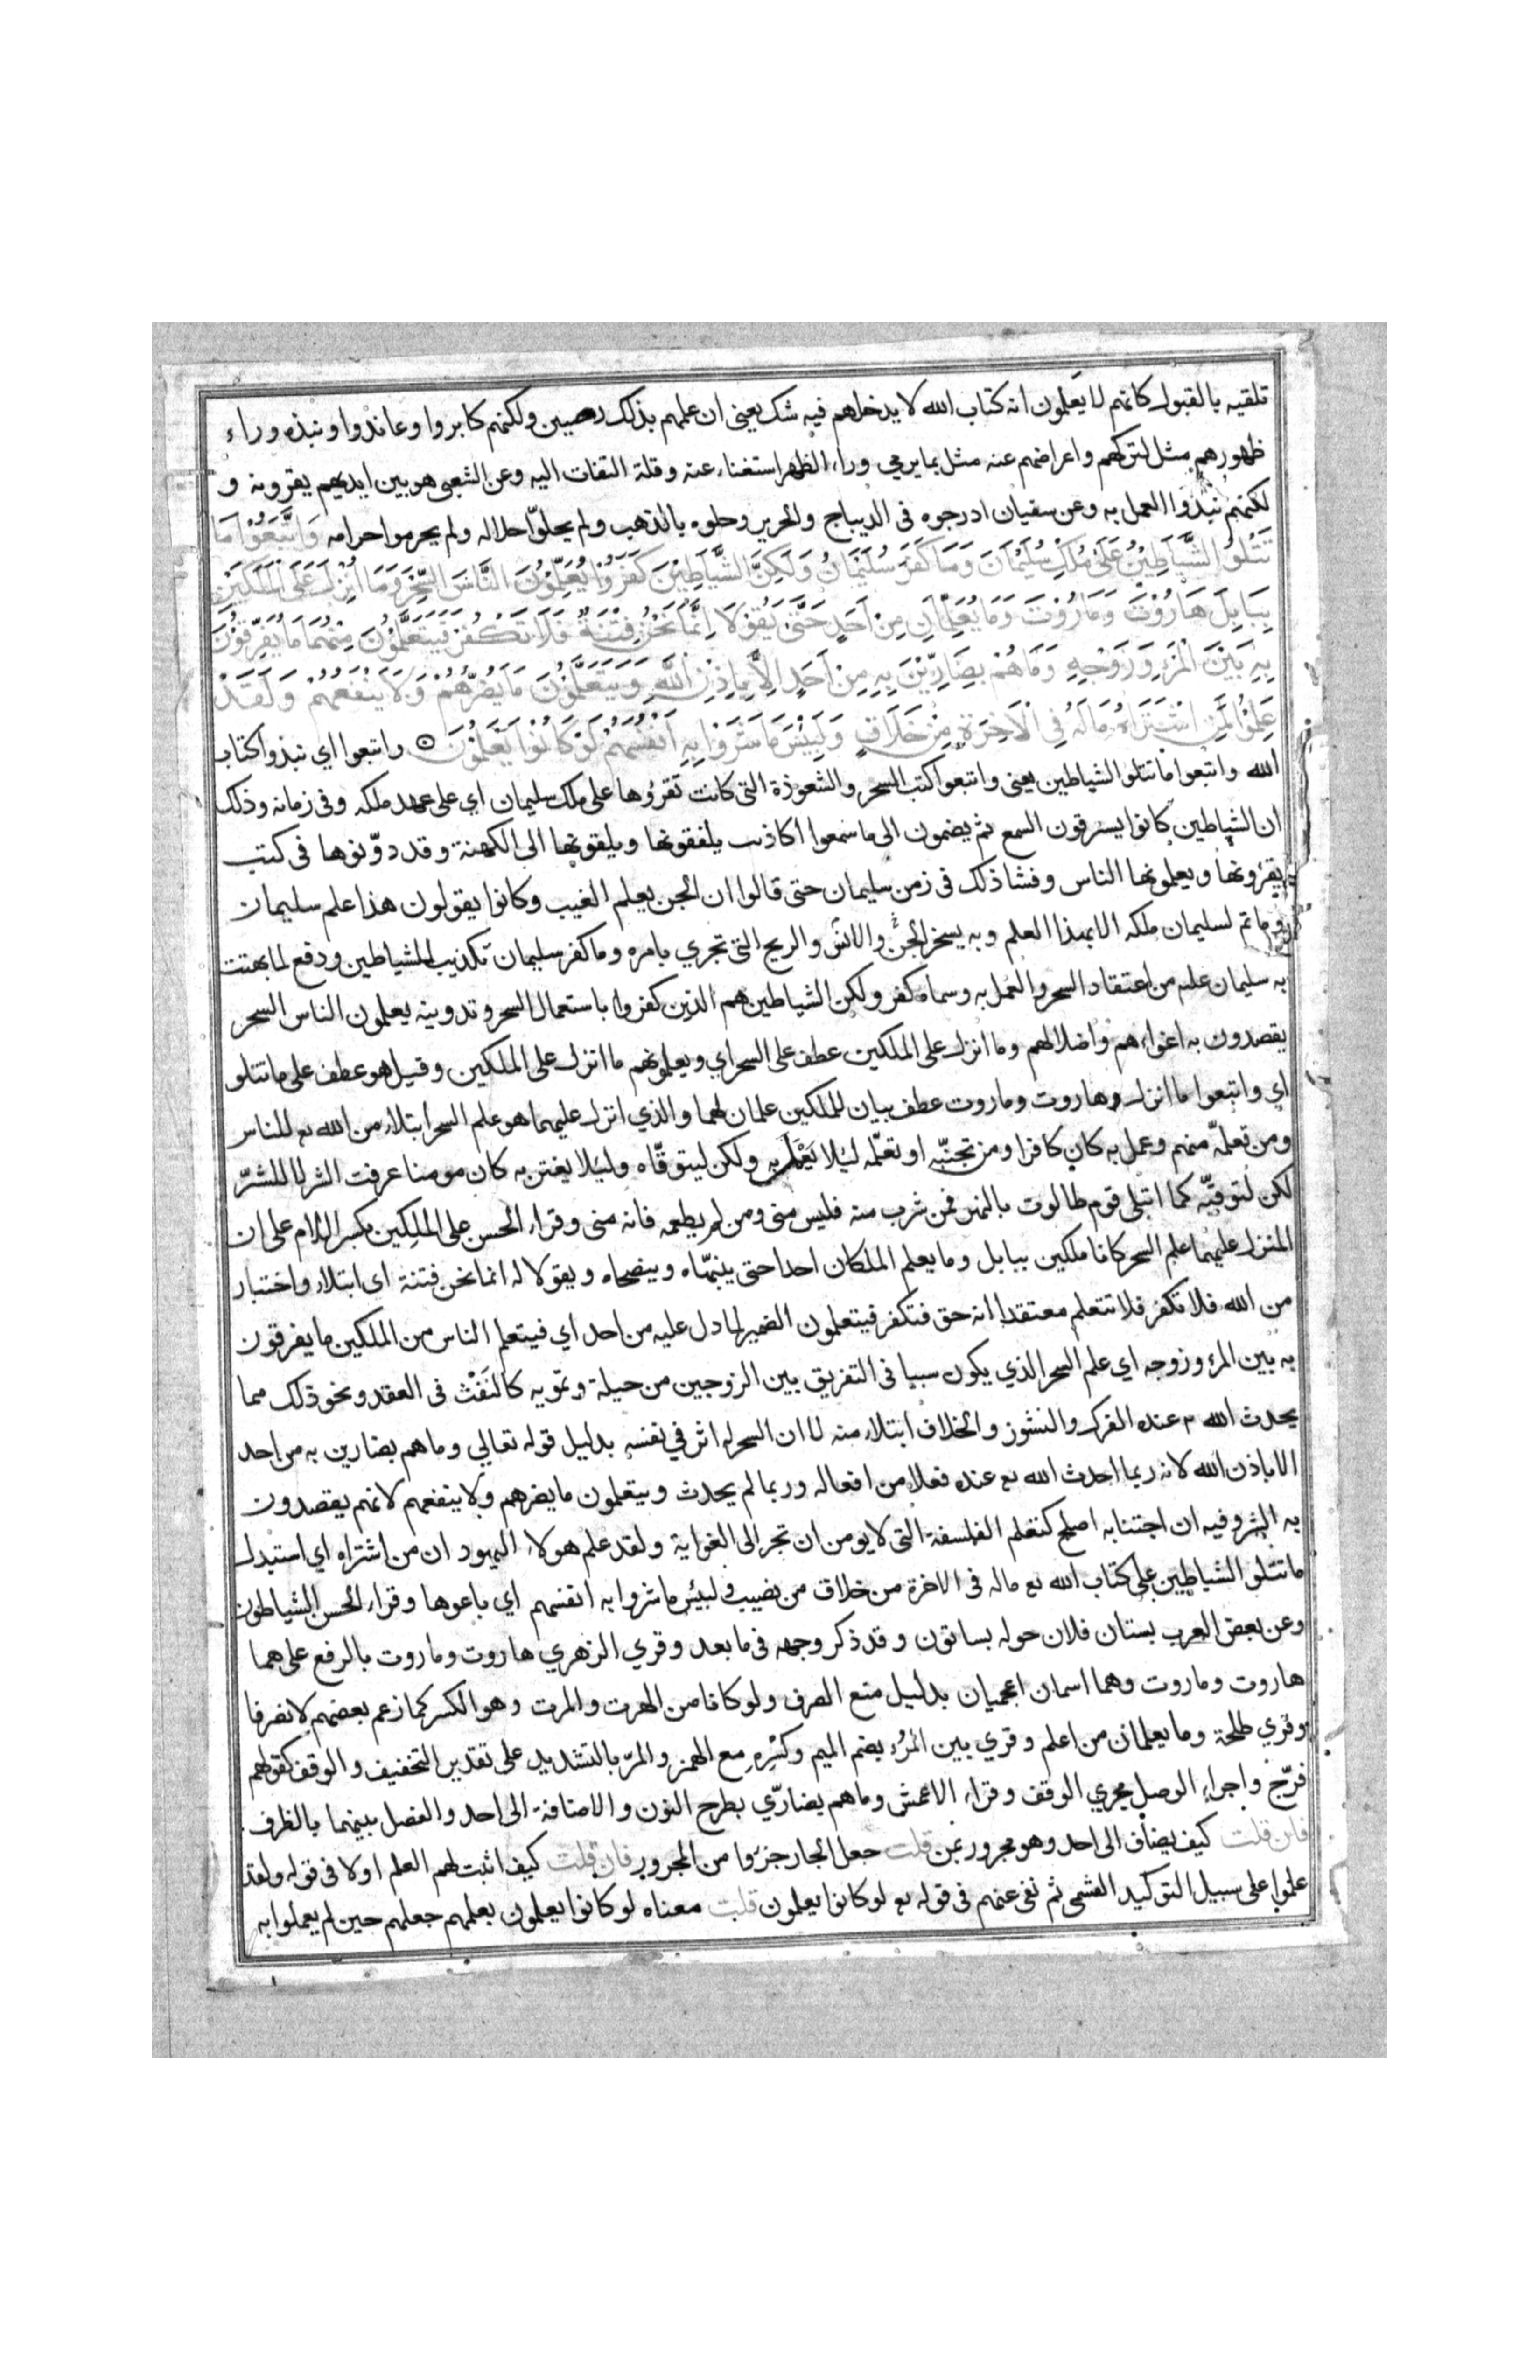 تلقيه بالقبول كانهم لا يعلمون انه كتاب الله لا يدخلهم فيه شك يعني ان علمهم بذلك رصين ولكنهم كابروا وعاندوا ونبذه وراء
ظهورهم مثل لتركهم واعراضهم عنه مثل بما يرمي وراء الظهر استغناء عنه وقلة التفات اليه وعن الشعبي هو بين ايديهم يقرونه و
لكنهم نبذوا العمل به وعن سفيان ادرجوه في الديباج والحرير وحلوه بالذهب ولم يحلوا حلاله ولم يحرموا حرامه وَاتَّبَعُوْا مَا
تَتْلُو الشَّيَاطِيْنُ عَلَىٰ مُلْكِ سُلَيْمَانَ وَمَا كَفَرَ سُلَيْمَانُ وَلَكِنَّ الشَّيَاطِيْنَ كَفَرُوْا يُعَلِّمُوْنَ النَّاسَ السِّحْرَ وَمَا اُنْزِلَ عَلَى الْمَلَكَيْنِ
بِبَابِلَ هَارُوْتَ وَمَارُوْتَ وَمَا يُعَلِّمَانِ مِنْ اَحَدٍ حَتَّىٰ يَقُوْلَا اِنَّمَا نَحْنُ فِتْنَةٌ فَلَا تَكْفُرْ فَيَتَعَلَّمُوْنَ مِنْهُمَا مَا يُفَرِّقُوْنَ
بِهٖ بَيْنَ الْمَرْءِ وَزَوْجِهٖ وَمَا هُمْ بِضَارِّيْنَ بِهٖ مِنْ اَحَدٍ اِلَّا بِاِذْنِ اللّٰهِ وَيَتَعَلَّمُوْنَ مَا يَضُرُّهُمْ وَلَا يَنْفَعُهُمْ وَلَقَدْ
عَلِمُوْا لَمَنِ اشْتَرَاهُ مَا لَهُ فِي الْاٰخِرَةِ مِنْ خَلَاقٍ وَلَبِئْسَ مَا شَرَوْا بِهٖ اَنْفُسَهُمْ لَوْ كَانُوْا يَعْلَمُوْنَ ۞ واتبعوا اي نبذوا كتاب
الله واتبعوا ما تتلو الشياطين يعني واتبعوا كتب السحر والشعوذة التي كانت تقرؤها على ملك سليمان اي على عهد ملكه وفي زمانه وذلك
ان الشياطين كانوا يسترقون السمع ثم يضمون الى ما سمعوا اكاذيب يلفقونها ويلقونها الى الكهنة وقد دوّنوها في كتب
يقرؤنها ويعلمونها الناس وفشا ذلك في زمن سليمان حتى قالوا ان الجن يعلم الغيب وكانوا يقولون هذا علم سليمان
وما تم لسليمان ملكه الا بهذا العلم وبه يسخر الجن والانس والريح التي تجري بامره وما كفر سليمان تكذيب للشياطين ودفع لما بهتت
به سليمان علم من اعتقاد السحر والعمل به وسماه كفر ولكن الشياطين هم الذين كفروا باستعمال السحر وتدوينه يعلمون الناس السحر
يقصدون به اغواءهم واضلالهم وما انزل على الملكين عطف على السحر اي ويعلمونهم ما انزل على الملكين وقيل هو عطف على ما تتلو
اي واتبعوا ما انزل وهاروت وماروت عطف بيان للملكين علمان لهما والذي انزل عليهما هو علم السحر ابتلاء من الله تع للناس
ومن تعلمه منهم وعمل به كان كافرا ومن تجنبه او تعلمه لئلا يعمل به ولكن ليتوقاه ولئلا يغتر به كان مومنا عرفت الشر لا للشرّ
لكن لتوقيه كما ابتلى قوم طالوت بالنهر فمن شرب منه فليس مني ومن لم يطعمه فانه مني وقراء الحسن على الملِكين بكسر اللام على ان
المنزل عليهما علم السحر كانا ملكين ببابل وما يعلم الملكان احدا حتى ينبهاه وينصحاه ويقولا له انما نحن فتنة اي ابتلاء واختبار
من الله فلا تكفر فلا تتعلم معتقدا انه حق فتكفر فيتعلمون الضمير لما دل عليه من احد اي فيتعلم الناس من الملكين ما يفرقون
به بين المرء وزوجه اي علم السحر الذي يكون سببا في التفريق بين الزوجين من حيلة وتمويه كالنفث في العقد ونحو ذلك مما
يحدث الله عنده الفرك والنشوز والخلاف ابتلاء منه لا ان السحر له اثر في نفسه بدليل قوله تعالي وما هم بضارين به من احد
الا باذن الله لانه ربما احدث الله تع عنده فعلا من افعاله وربما لم يحدث ويتعلمون ما يضرهم ولا ينفعهم لانهم يقصدون
به الشر وفيه ان اجتنابه اصلح كتعلم الفلسفة التي لا يومن ان تجر الى الغواية ولقد علم هولاء اليهود ان من اشتراه اي استبدل
ما تتلو الشياطين على كتاب الله تع ماله في الاخرة من خلاق من نصيب ولبئس ما شروا به انفسهم اي باعوها وقراء الحسن الشياطون
وعن بعض العرب بستان فلان حوله بساتون وقد ذكر وجهه في ما بعد وقري الزهري هاروت وماروت بالرفع على هما
هاروت وماروت وهما اسمان اعجميان بدليل منع الصرف ولو كانا من الهرت والمرت وهو الكسر كما زعم بعضهم لانصرفا
وقري طلحة وما يعلمان من اعلم وقري بين المرُء بضم الميم وكسره مع الهمز والمرّ بالتشديد على تقدير التخفيف والوقف كقولهم
فرّج واجراء الوصل مجري الوقف وقراء الاعمش وما هم بضارّي بطرح النون والاضافة الى احد والفصل بينهما بالظرف
فان قلت كيف يضاف الى احد وهو مجرور بمن قلت جعل الجار جزوا من المجرور فان قلت كيف اثبت لهم العلم اولا في قوله ولقد
علموا على سبيل التوكيد القسمي ثم نفى عنهم في قوله تع لو كانوا يعلمون قلت معناه لو كانوا يعملون بعلمهم جعلهم حين لم يعملوا به